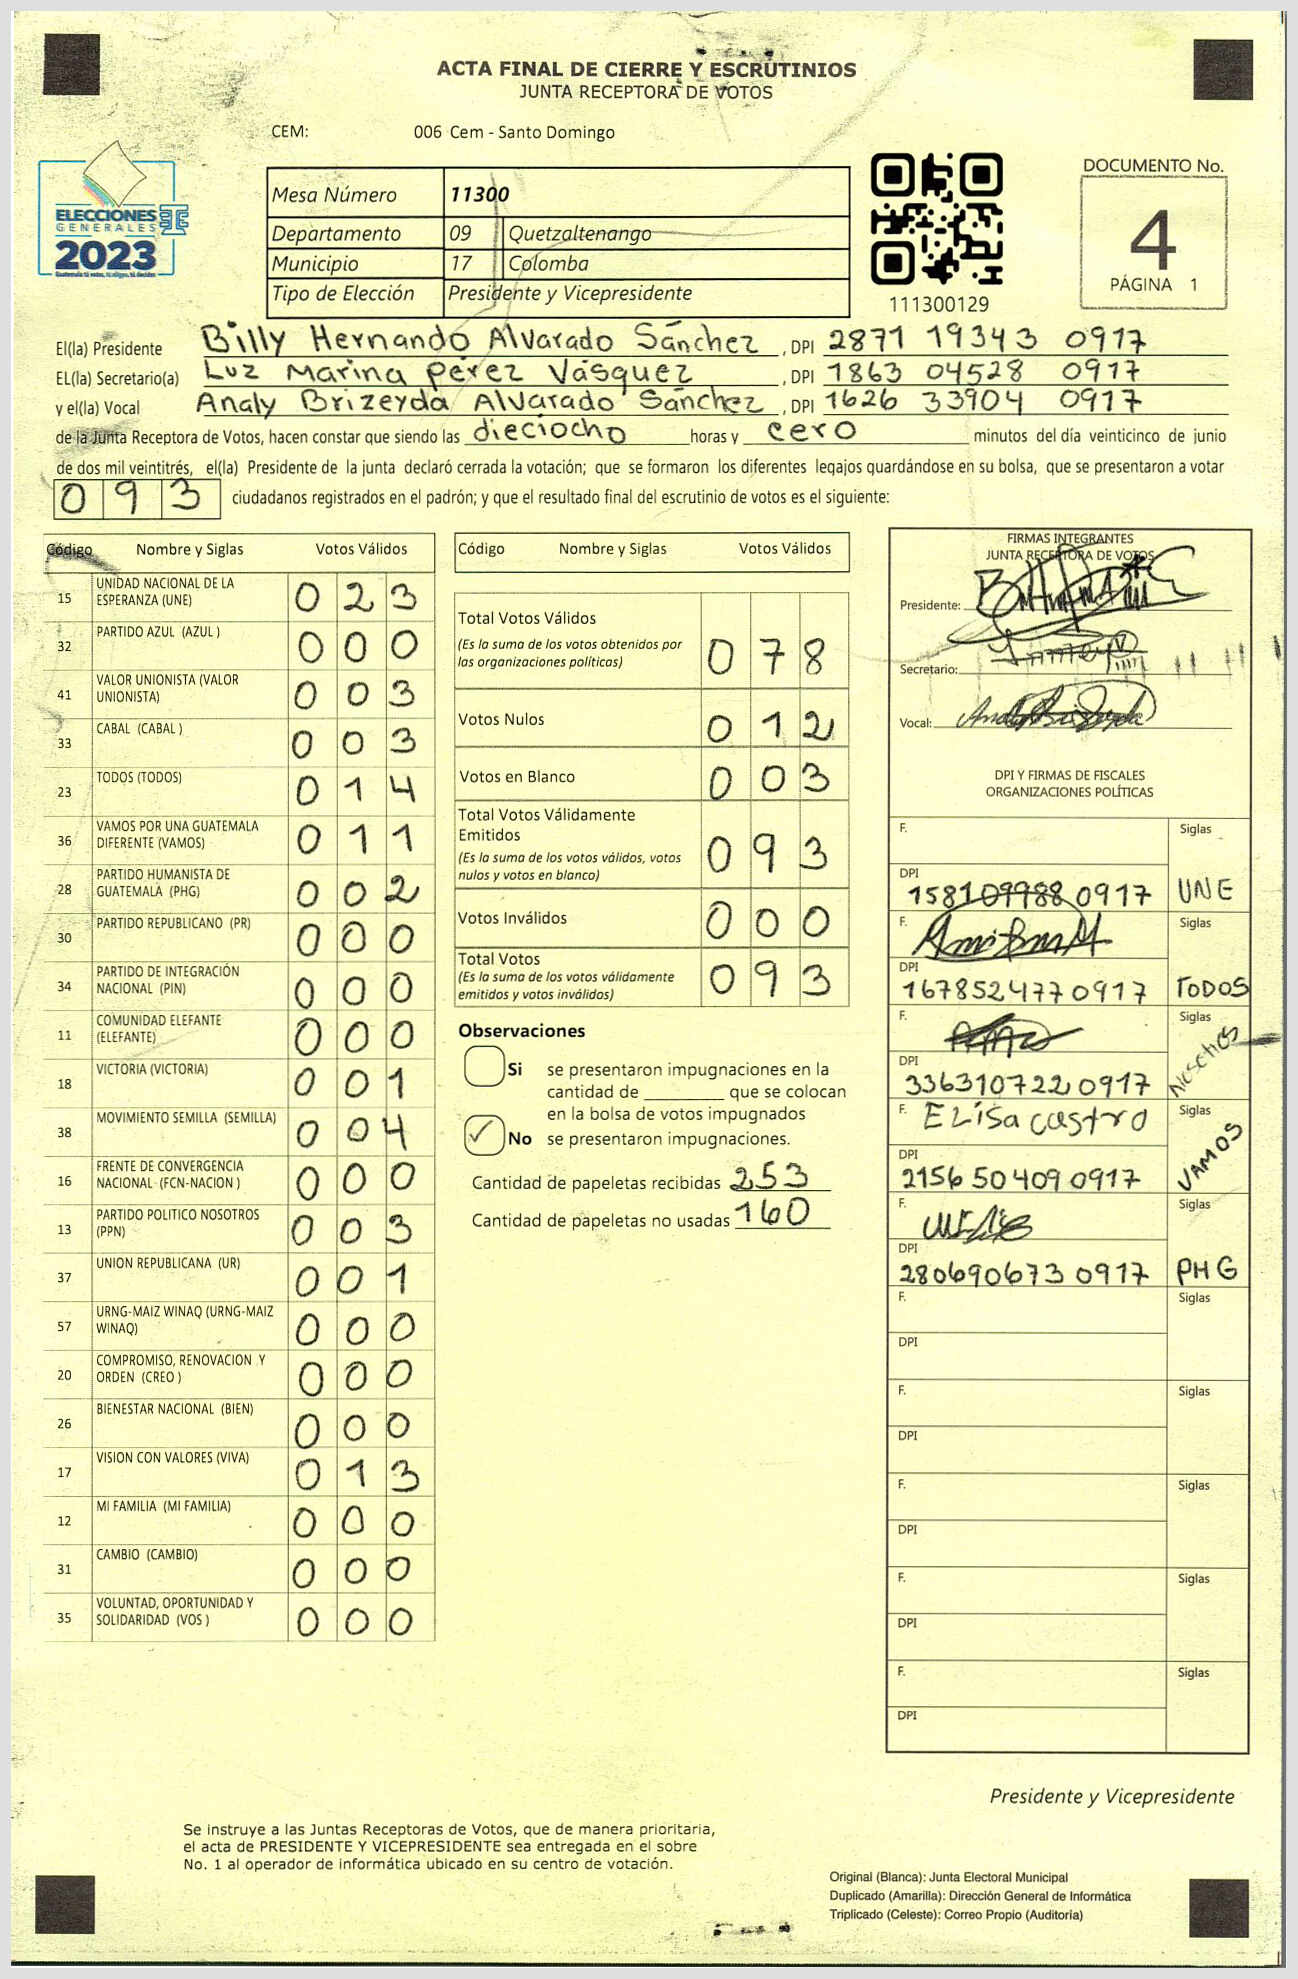 ACTA FINAL DE CIERRE Y ESCRUTINIOS
JUNTA RECEPTORA DE VOTOS
CEM: 006 Cem - Santo Domingo
ELECCIONES
GENERALES
2023
Mesa Número 11300
Departamento 09 Quetzaltenango
Municipio 17 Colomba
Tipo de Elección Presidente y Vicepresidente
111300129
DOCUMENTO No.
4
PÁGINA 1
El(la) Presidente Billy Hernando Alvarado Sánchez, DPI 2871 19343 0917
EL(la) Secretario(a) Luz Marina Pérez Vásquez, DPI 1863 04528 0917
y el(la) Vocal Analy Brizeyda Alvarado Sánchez, DPI 1626 33904 0917
de la Junta Receptora de Votos, hacen constar que siendo las dieciocho horas y cero minutos del día veinticinco de junio
de dos mil veintitrés, el(la) Presidente de la junta declaró cerrada la votación; que se formaron los diferentes legajos guardándose en su bolsa, que se presentaron a votar
093 ciudadanos registrados en el padrón; y que el resultado final del escrutinio de votos es el siguiente:
Código Nombre y Siglas Votos Válidos
15 UNIDAD NACIONAL DE LA ESPERANZA (UNE) 023
32 PARTIDO AZUL (AZUL ) 000
41 VALOR UNIONISTA (VALOR UNIONISTA) 003
33 CABAL (CABAL ) 003
23 TODOS (TODOS) 014
36 VAMOS POR UNA GUATEMALA DIFERENTE (VAMOS) 011
28 PARTIDO HUMANISTA DE GUATEMALA (PHG) 002
30 PARTIDO REPUBLICANO (PR) 000
34 PARTIDO DE INTEGRACIÓN NACIONAL (PIN) 000
11 COMUNIDAD ELEFANTE (ELEFANTE) 000
18 VICTORIA (VICTORIA) 001
38 MOVIMIENTO SEMILLA (SEMILLA) 004
16 FRENTE DE CONVERGENCIA NACIONAL (FCN-NACION ) 000
13 PARTIDO POLITICO NOSOTROS (PPN) 003
37 UNION REPUBLICANA (UR) 001
57 URNG-MAIZ WINAQ (URNG-MAIZ WINAQ) 000
20 COMPROMISO, RENOVACION Y ORDEN (CREO ) 000
26 BIENESTAR NACIONAL (BIEN) 000
17 VISION CON VALORES (VIVA) 013
12 MI FAMILIA (MI FAMILIA) 000
31 CAMBIO (CAMBIO) 000
35 VOLUNTAD, OPORTUNIDAD Y SOLIDARIDAD (VOS ) 000
Código Nombre y Siglas Votos Válidos
Total Votos Válidos
(Es la suma de los votos obtenidos por
las organizaciones políticas) 078
Votos Nulos 012
Votos en Blanco 003
Total Votos Válidamente
Emitidos
(Es la suma de los votos válidos, votos
nulos y votos en blanco) 093
Votos Inválidos 000
Total Votos
(Es la suma de los votos válidamente
emitidos y votos inválidos) 093
Observaciones
Si se presentaron impugnaciones en la
cantidad de ________ que se colocan
en la bolsa de votos impugnados
✓ No se presentaron impugnaciones.
Cantidad de papeletas recibidas 253
Cantidad de papeletas no usadas 160
FIRMAS INTEGRANTES
JUNTA RECEPTORA DE VOTOS
Presidente:
Secretario:
Vocal:
DPI Y FIRMAS DE FISCALES
ORGANIZACIONES POLÍTICAS
F. Siglas
DPI 1581099880917 UNE
F. Siglas
DPI 1678524770917 TODOS
F. Siglas
DPI 3363107220917 Nosotros
F. Elisa castro Siglas
DPI 2156504090917 VAMOS
F. Siglas
DPI 2806906730917 PHG
F. Siglas
DPI
F. Siglas
DPI
F. Siglas
DPI
F. Siglas
DPI
F. Siglas
DPI
Presidente y Vicepresidente
Se instruye a las Juntas Receptoras de Votos, que de manera prioritaria,
el acta de PRESIDENTE Y VICEPRESIDENTE sea entregada en el sobre
No. 1 al operador de informática ubicado en su centro de votación.
Original (Blanca): Junta Electoral Municipal
Duplicado (Amarilla): Dirección General de Informática
Triplicado (Celeste): Correo Propio (Auditoría)